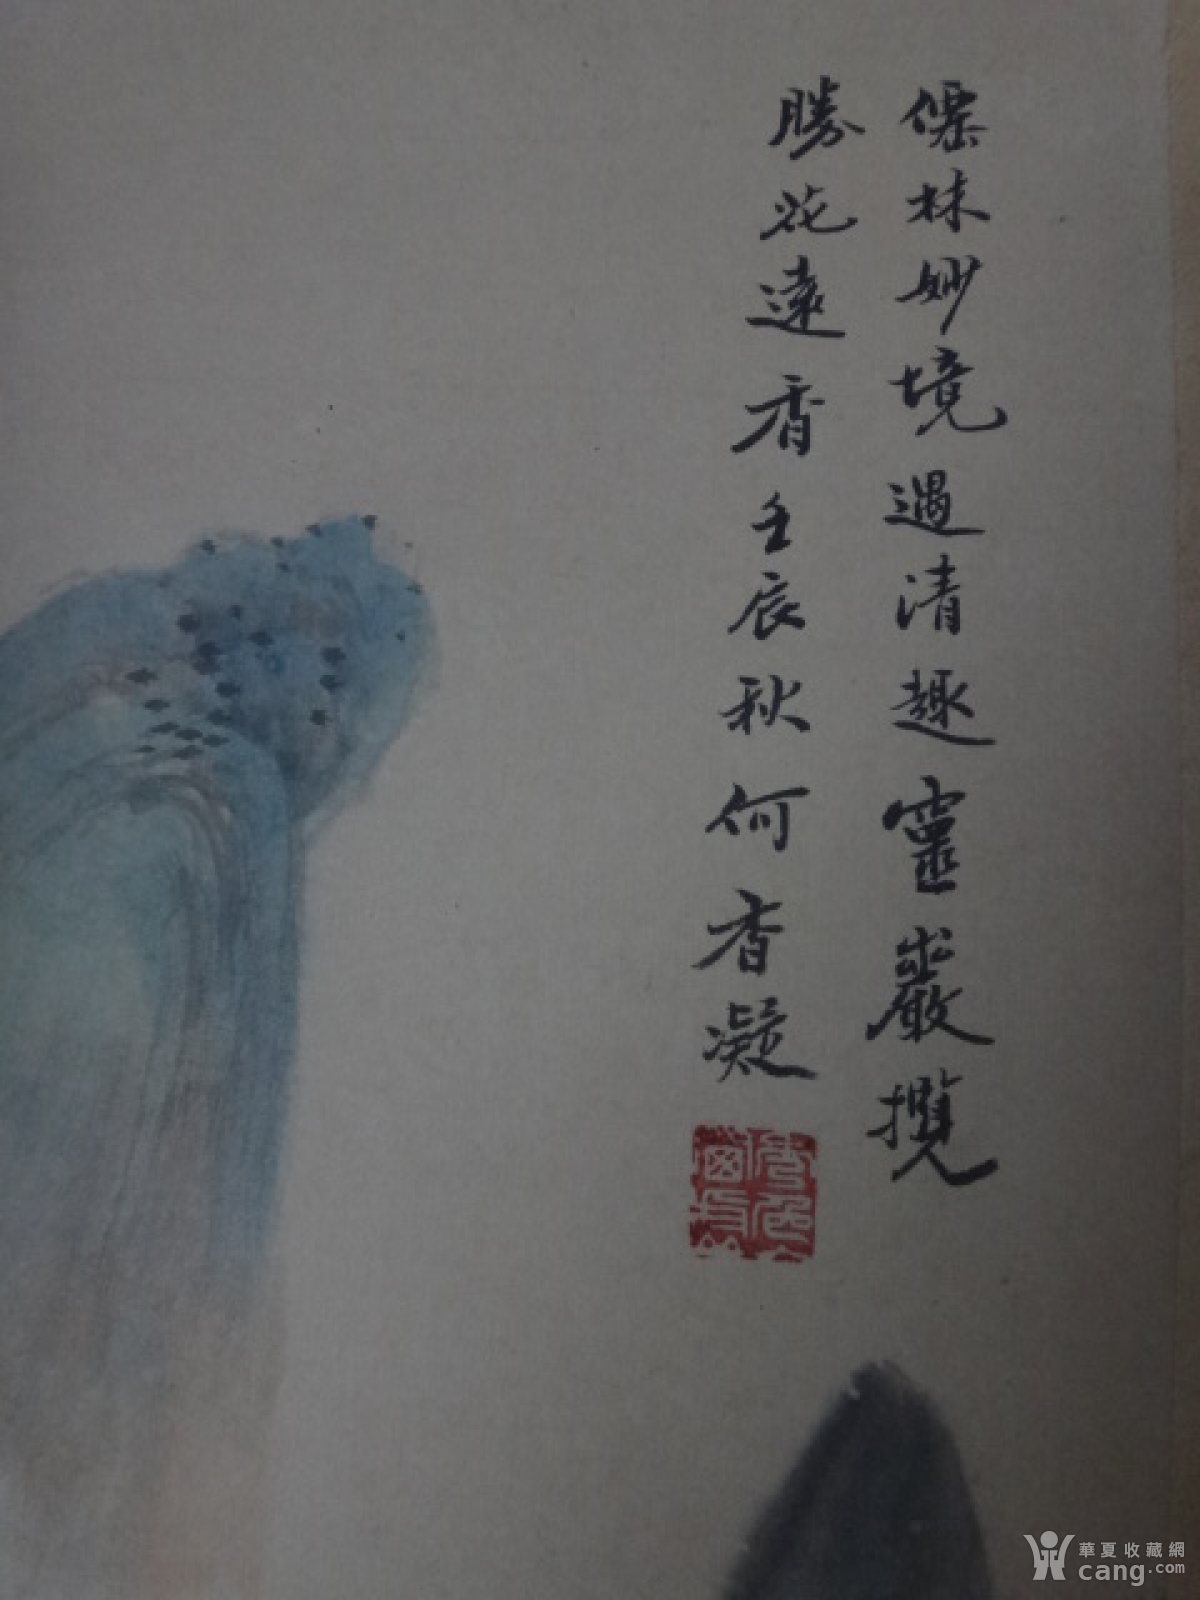 保林妙境遇清趣靈巖攬
勝花遠香壬辰秋何香凝
華夏收藏網
cang.com